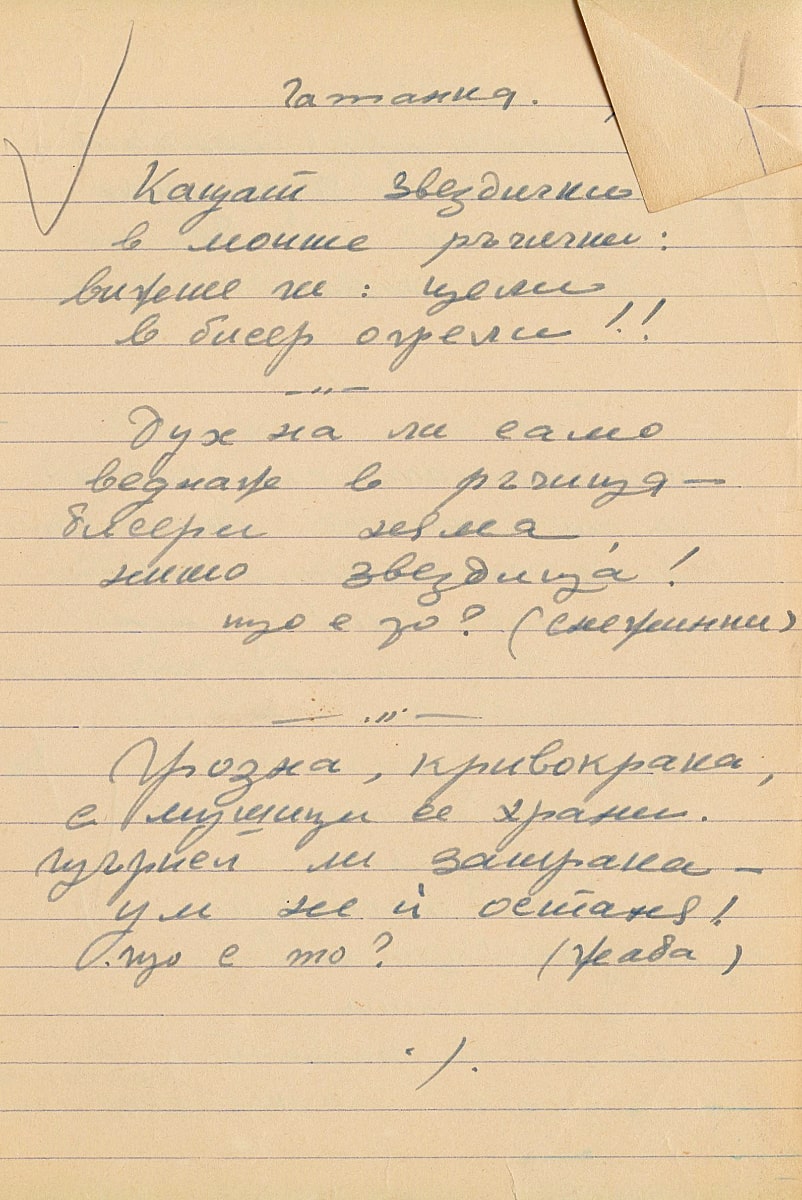 Гатанка.
Кацат звездички
в моите ръчички:
вижте ги: цели
в бисер огрели!!
—„—
Дух на ли само
веднаж в ръчица —
бисери няма
нито звездица!
що е то? (снежинки)
— .„. —
Грозна, кривокрака,
с мушици се храни.
щъркел ли затрака —
ум не ѝ остана!
що е то? (жаба)
./.